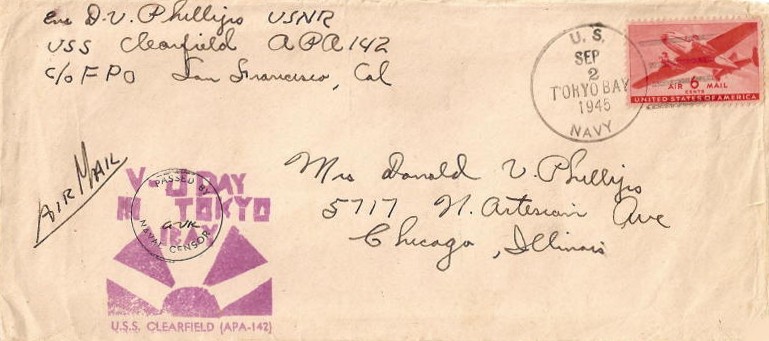 Ens D. V. Phillips USNR
USS Clearfield APA 142
c/o FPO San Francisco, Cal
U. S.
SEP
2
TOKYO BAY
1945
NAVY
AIR 6 MAIL
CENTS
UNITED STATES OF AMERICA
AIR MAIL
Mrs Donald V. Phillips
5717 N. Artesian Ave
Chicago, Illinois
V-J DAY
IN TOKYO
BAY
PASSED BY
NAVAL CENSOR
U.S.S. CLEARFIELD (APA-142)